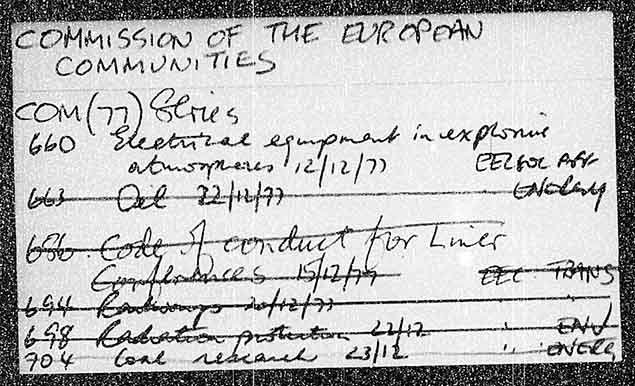 COMMISSION OF THE EUROPEAN
COMMUNITIES
COM(77) Series
660 Electrical equipment in explosive
atmospheres 12/12/77 EEC
663 Oil 22/12/77 ENERGY
686 Code of conduct for Liner
Conferences 15/12/77 EEC TRANS
694 20/12/77 "
698 Radiation protection 22/12 " ENV
704 Coal research 23/12 " ENERG